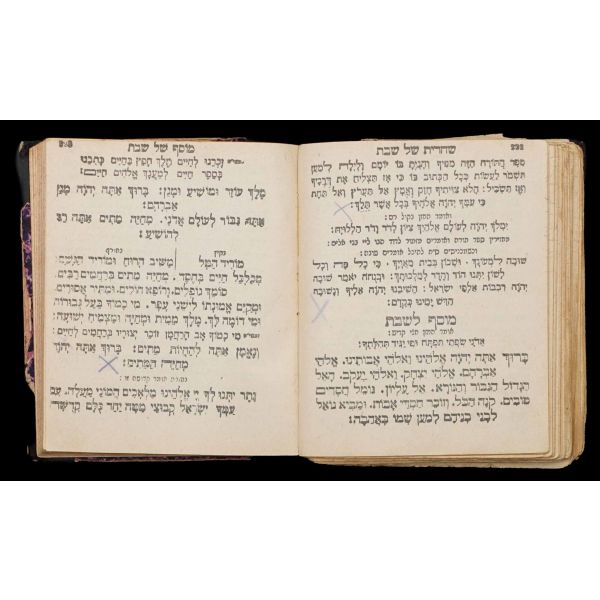 שחרית של שבת
ספר התורה הזה מפיך והגית בו יומם ולילה למען
תשמר לעשות ככל הכתוב בו כי אז תצליח את דרכיך
ואז תשכיל: הלא צויתיך חזק ואמץ אל תערץ ואל תחת
כי עמך יהוה אלהיך בכל אשר תלך:
ואומר החזן בקול רם
ימלך יהוה לעולם אלהיך ציון לדר ודר הללויה:
שובה למעונך ושכון בבית מאוייך, כי כל פה וכל
לשון יתנו הוד והדר למלכותך: ובנחה יאמר שובה
יהוה רבבות אלפי ישראל: השיבנו יהוה אליך ונשובה
חדש ימינו כקדם:
מוסף לשבת
אדני שפתי תפתח ופי יגיד תהלתך:
ברוך אתה יהוה אלהינו ואלהי אבותינו. אלהי
אברהם. אלהי יצחק. ואלהי יעקב. האל
הגדול הגבור והנורא. אל עליון. גומל חסדים
טובים. קונה הכל. וזוכר חסדי אבות. ומביא גואל
לבני בניהם למען שמו באהבה:
מוסף של שבת
זכרנו לחיים מלך חפץ בחיים כתבנו
בספר חיים למענך אלהים חיים:
מלך עוזר ומושיע ומגן: ברוך אתה יהוה מגן
אברהם:
אתה גבור לעולם אדני. מחיה מתים אתה רב
להושיע:
בקיץ בחורף
מוריד הטל משיב הרוח ומוריד הגשם:
מכלכל חיים בחסד. מחיה מתים ברחמים רבים.
סומך נופלים. ורופא חולים. ומתיר אסורים.
ומקים אמונתו לישני עפר. מי כמוך בעל גבורות
ומי דומה לך. מלך ממית ומחיה ומצמיח ישועה:
מי כמוך אב הרחמן זוכר יצוריו ברחמים לחיים:
ונאמן אתה להחיות מתים: ברוך אתה יהוה
מחיה המתים:
כתר יתנו לך יי אלהינו מלאכים המוני מעלה. עם
עמך ישראל קבוצי מטה יחד כלם קדושה